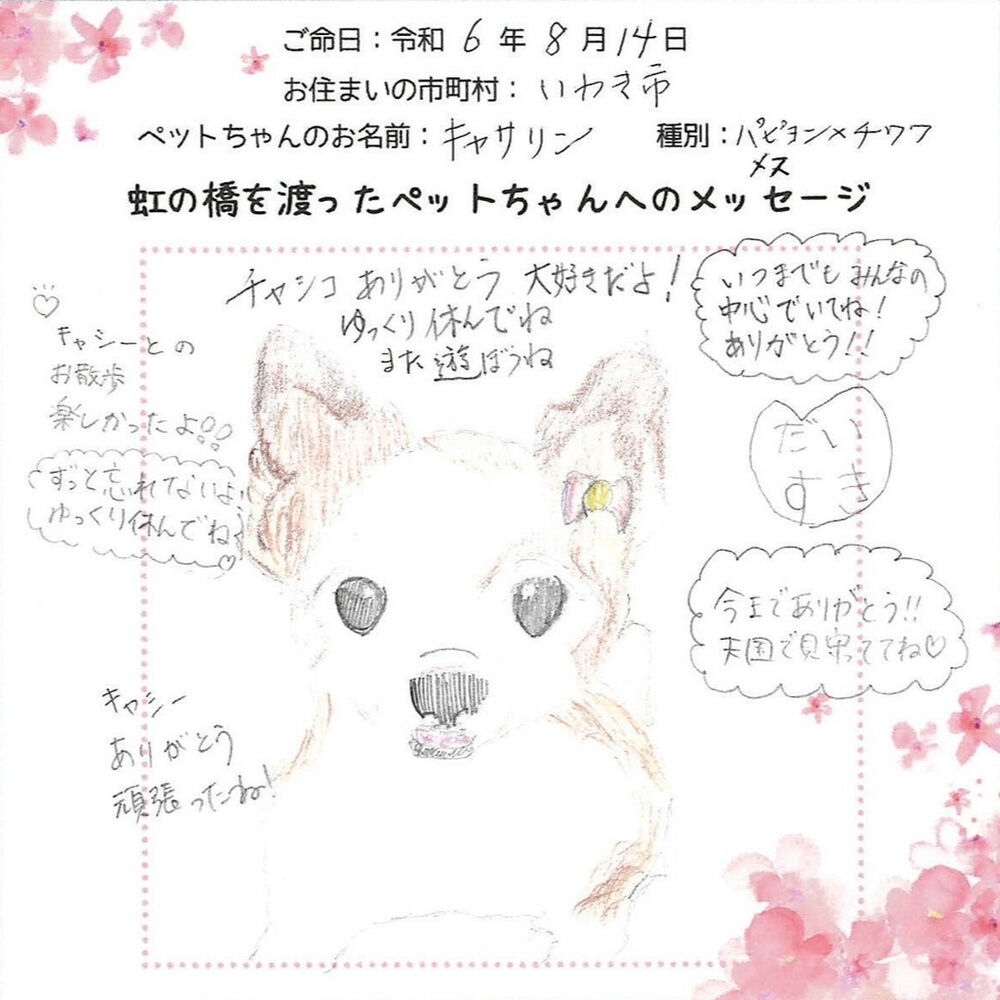 ご命日：令和 6 年 8 月 14 日
お住まいの市町村： いわき市
ペットちゃんのお名前：キャサリン 種別：パピヨン×チワワ
メス
虹の橋を渡ったペットちゃんへのメッセージ
チャシコ ありがとう 大好きだよ！
ゆっくり休んでね
また遊ぼうね
いつまでもみんなの
中心でいてね！
ありがとう！！
キャシーとの
お散歩
楽しかったよ!!
ずっと忘れてないよ
ゆっくり休んでね♡
だい
すき
今までありがとう!!
天国で見守っててね♡
キャシー
ありがとう
頑張ったね！